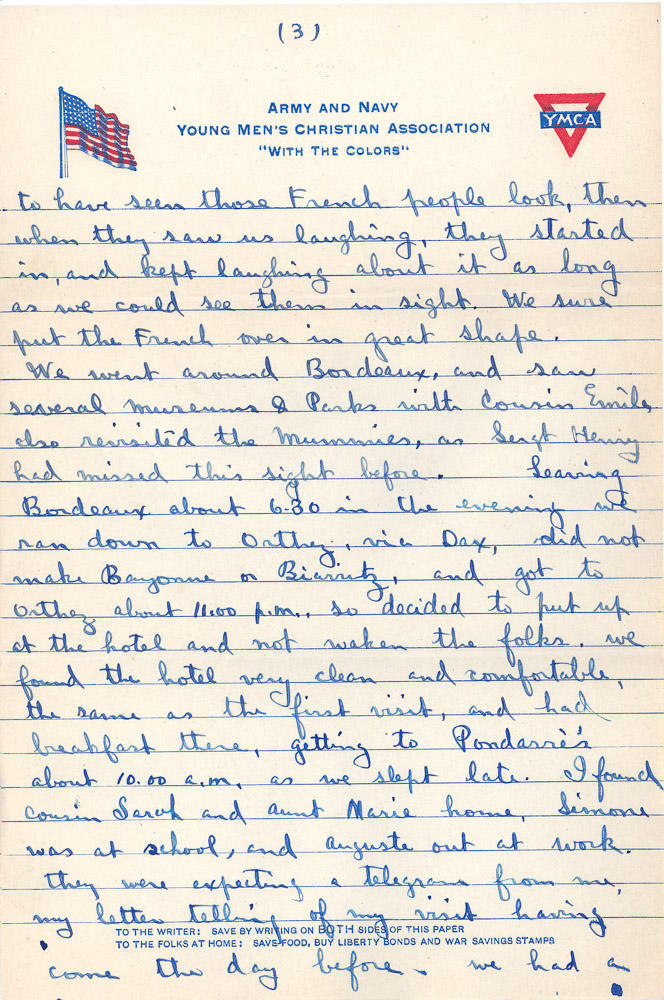 (3)
ARMY AND NAVY
YOUNG MEN'S CHRISTIAN ASSOCIATION
"WITH THE COLORS"
YMCA
to have seen those French people look, then
when they saw us laughing, they started
in, and kept laughing about it as long
as we could see them in sight. We sure
put the French over in great shape.
We went around Bordeaux, and saw
several museums & Parks with Cousin Emile,
also revisited the Mummies, as Sergt Henry
had missed this sight before. Leaving
Bordeaux about 6-30 in the evening we
ran down to Orthez, via Dax, did not
make Bayonne or Biarritz, and got to
Orthez about 11.00 p.m., so decided to put up
at the hotel and not waken the folks. we
found the hotel very clean and comfortable,
the same as the first visit, and had
breakfast there, getting to Pondarré's
about 10.00 a.m. as we slept late. I found
cousin Sarah and aunt Marie home, Simone
was at school, and Auguste out at work.
they were expecting a telegram from me,
my letter telling of my visit having
TO THE WRITER: SAVE BY WRITING ON BOTH SIDES OF THIS PAPER
TO THE FOLKS AT HOME: SAVE FOOD, BUY LIBERTY BONDS AND WAR SAVINGS STAMPS
come the day before. we had a